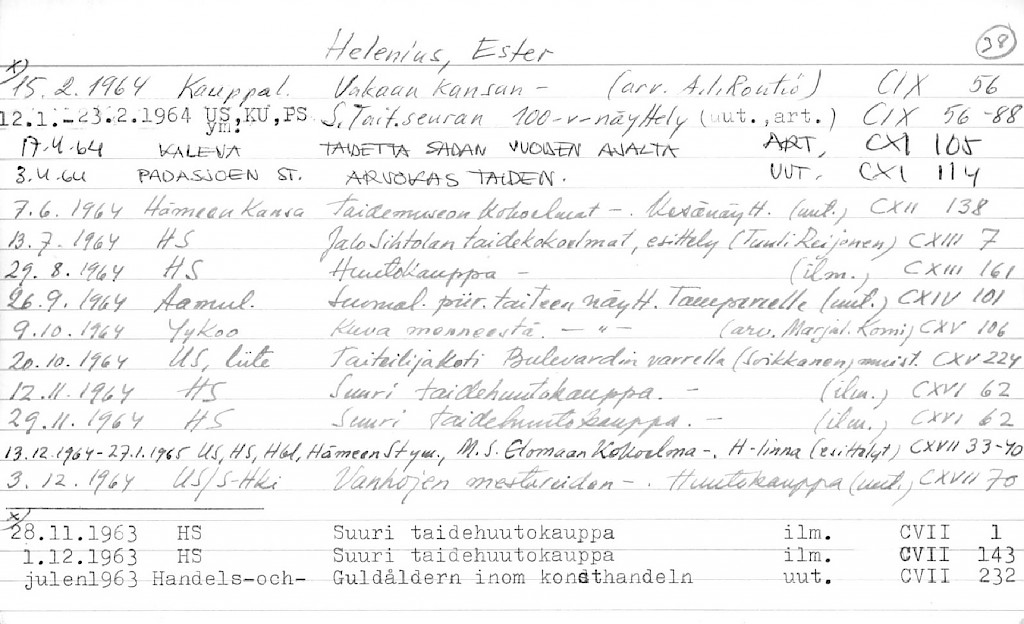 Helenius, Ester 38
x)
15.2.1964 Kauppal. Vakaan kansan - (arv. A.I. Routio) CIX 56
12.1.-23.2.1964 US,KU,PS ym. S.Tait.seuran 100-v-näyttely (uut.,art.) CIX 56-88
17.4.64 KALEVA TAIDETTA SADAN VUODEN AJALTA ART, CXI 105
3.4.64 PADASJOEN ST. ARVOKAS TAIDEN. UUT. CXI 114
7.6.1964 Hämeen Kansa Taidemuseon Kokoelmat -. Kesänäytt. (uut.) CXII 138
13.7.1964 HS Jalo Sihtolan taidekokoelmat, esittely (Tuuli Reijonen) CXIII 7
29.8.1964 HS Huutokauppa - (ilm.) CXIII 161
26.9.1964 Aamul. Suomal. piir. taiteen näytt. Tampereelle (uut.) CXIV 101
9.10.1964 YyKoo Kuva menneestä. - " - (arv. Marjal. Komi) CXV 106
20.10.1964 US, liite Taiteilijakoti Bulevardin varrella (Soikkanen) muist. CXV 224
12.11.1964 HS Suuri taidehuutokauppa. - (ilm.) CXVI 62
29.11.1964 HS Suuri taidehuutokauppa. - (ilm.) CXVI 62
13.12.1964-27.1.1965 US, HS, Hbl, Hämeen S ym., M.S. Elomaan Kokoelma -. H-linna (esittelyt) CXVII 33-40
3.12.1964 US/S-Hki Vanhojen mestareiden -. Huutokauppa (uut.) CXVII 70
x)
28.11.1963 HS Suuri taidehuutokauppa ilm. CVII 1
1.12.1963 HS Suuri taidehuutokauppa ilm. CVII 143
julen1963 Handels-och- Guldåldern inom konsthandeln uut. CVII 232